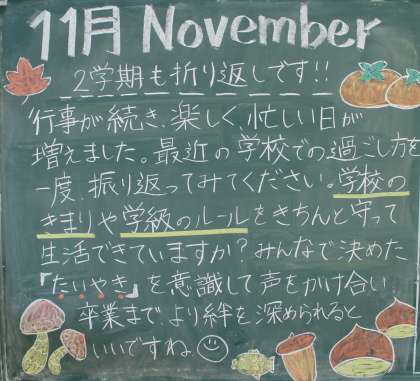 11月 November
2学期も折り返しです!!
行事が続き、楽しく、忙しい日が
増えました。最近の学校での過ごし方を
一度、振り返ってみてください。学校の
きまりや学級のルールをきちんと守って
生活できていますか?みんなで決めた
「たいやき」を意識して声をかけ合い
卒業まで、より絆を深められると
いいですね。